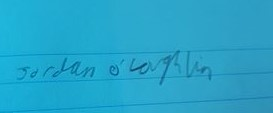 Jordan O'Loughlin